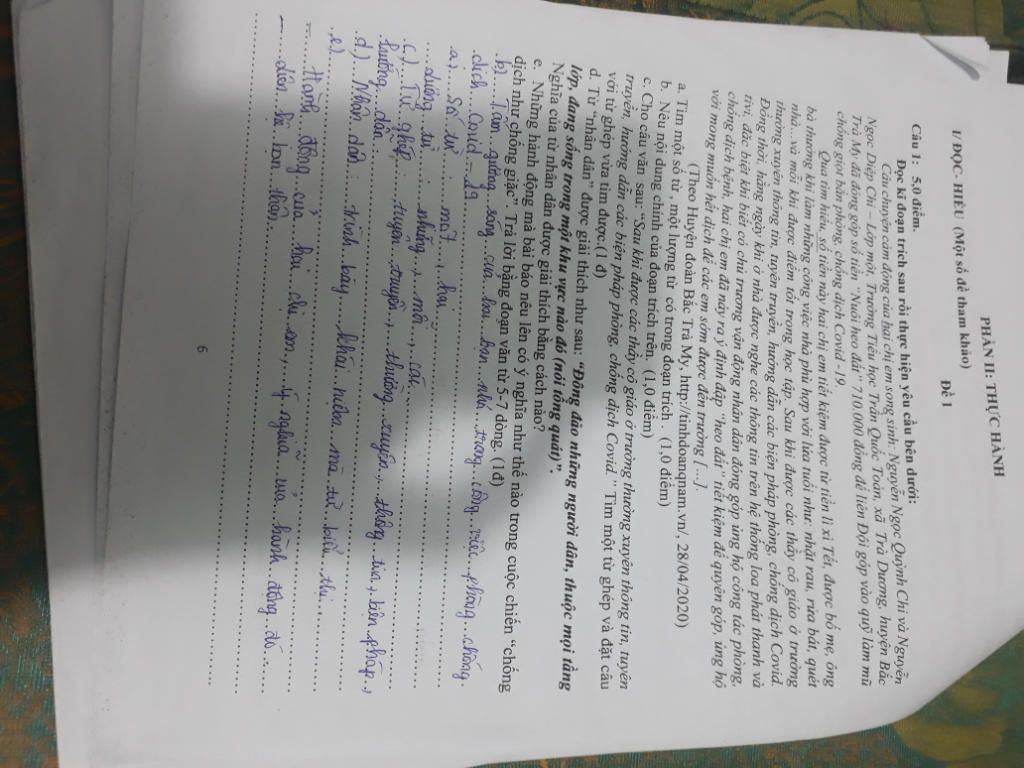 PHẦN II: THỰC HÀNH
I/ ĐỌC- HIỂU (Một số đề tham khảo)
Đề 1
Câu 1: 5,0 điểm.
Đọc kĩ đoạn trích sau rồi thực hiện yêu cầu bên dưới:
Câu chuyện cảm động của hai chị em song sinh: Nguyễn Ngọc Quỳnh Chi và Nguyễn
Ngọc Diệp Chi – Lớp một, Trường Tiểu học Trần Quốc Toản, xã Trà Dương, huyện Bắc
Trà My đã đóng góp số tiền "Nuôi heo đất" 710.000 đồng để liên Đội góp vào quỹ làm mũ
chống giọt bắn phòng, chống dịch Covid -19.
Qua tìm hiểu, số tiền này hai chị em tiết kiệm được từ tiền lì xì Tết, được bố mẹ, ông
bà thưởng khi làm những công việc nhà phù hợp với lứa tuổi như: nhặt rau, rửa bát, quét
nhà…và mỗi khi được điểm tốt trong học tập. Sau khi được các thầy cô giáo ở trường
thường xuyên thông tin, tuyên truyền, hướng dẫn các biện pháp phòng, chống dịch Covid.
Đồng thời, hằng ngày khi ở nhà được nghe các thông tin trên hệ thống loa phát thanh và
tivi, đặc biệt khi biết có chủ trương vận động nhân dân đóng góp ủng hộ công tác phòng,
chống dịch bệnh, hai chị em đã nảy ra ý định đập "heo đất" tiết kiệm để quyên góp, ủng hộ
với mong muốn hết dịch để các em sớm được đến trường [….].
(Theo Huyện đoàn Bắc Trà My, http://tinhdoanqnam.vn/, 28/04/2020)
a. Tìm một số từ , một lượng từ có trong đoạn trích . (1,0 điểm)
b. Nêu nội dung chính của đoạn trích trên. (1,0 điểm)
c. Cho câu văn sau: "Sau khi được các thầy cô giáo ở trường thường xuyên thông tin, tuyên
truyền, hướng dẫn các biện pháp phòng, chống dịch Covid." Tìm một từ ghép và đặt câu
với từ ghép vừa tìm được.(1 đ)
d. Từ "nhân dân" được giải thích như sau: "Đông đảo những người dân, thuộc mọi tầng
lớp, đang sống trong một khu vực nào đó (nói tổng quát)".
Nghĩa của từ nhân dân được giải thích bằng cách nào?
e. Những hành động mà bài báo nêu lên có ý nghĩa như thế nào trong cuộc chiến "chống
dịch như chống giặc". Trả lời bằng đoạn văn từ 5-7 dòng. (1đ)
b) Tấm gương sáng của hai bạn nhỏ trong công việc phòng chống
dịch Covid - 19
a) Số từ : một, hai
dường từ : những, mỗi, các
c) Từ ghép : tuyên truyền, thường xuyên, thông tin, biện pháp,
hướng dẫn
d) Nhân dân : trình bày khái niệm mà từ biểu thị
e)
Hành động của hai chị em, ý nghĩa của hành động đó
- bản thân
6